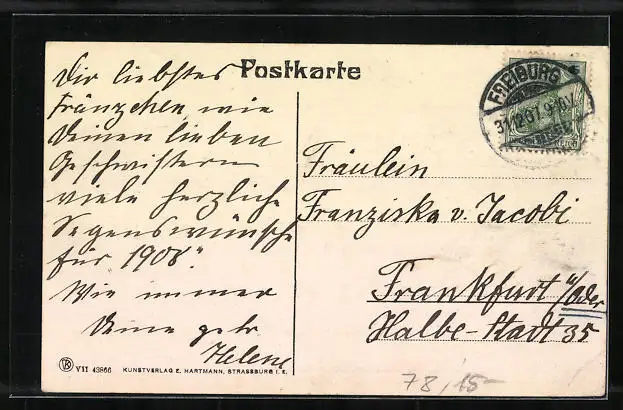 Postkarte
Dir liebstes
Fränzchen, wie
Deinen lieben
Geschwistern
viele herzliche
Segenswünsche
für 1908.
Wie immer
Deine getr.
Helene
FREIBURG
31 12 07 9-10 V
Fräulein
Franziska v. Jacobi
Frankfurt a/Oder
Halbe-Stadt 35
VII 43866 KUNSTVERLAG E. HARTMANN, STRASSBURG I. E.
78, 15-